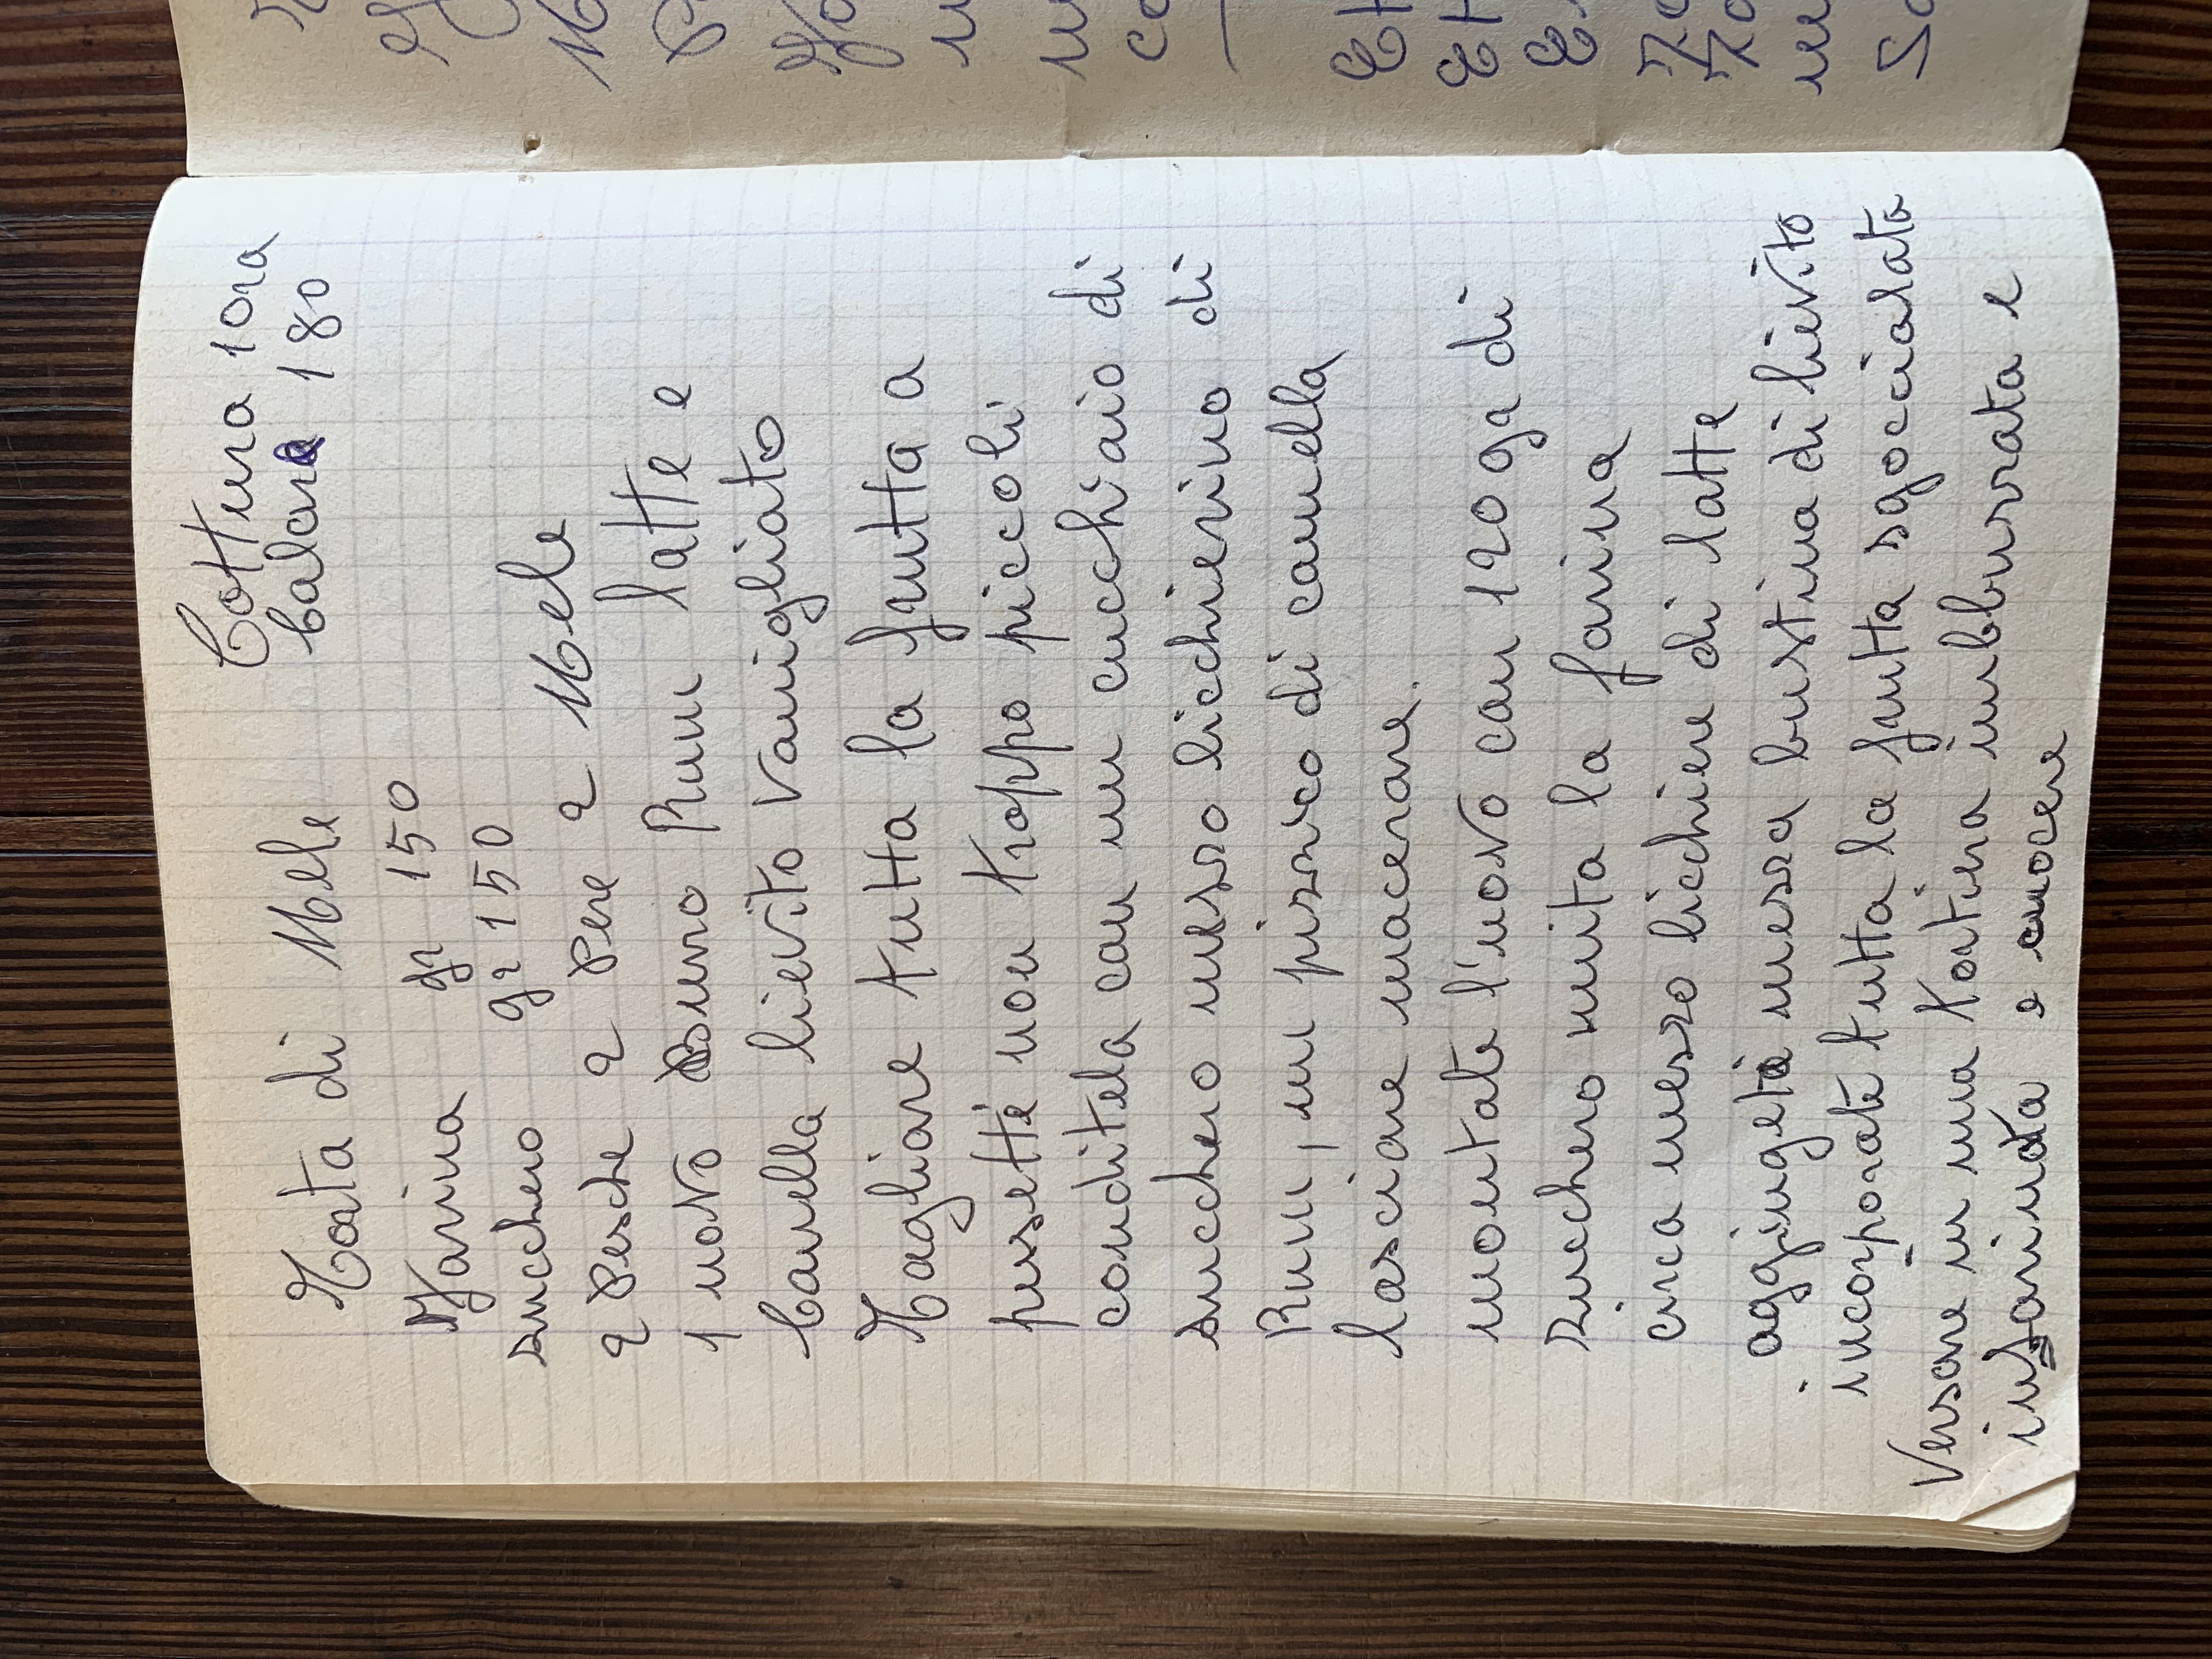 Cottura 1 Ora
Torta di Mele Calore 180
Farina gr 150
zucchero gr 150
2 Pesche 2 Pere 2 Mele
1 uovo Burro Rum latte e
Canella lievito Vanigliato
Tagliare tutta la frutta a
pezsetti non troppo piccoli
conditela con un cucchiaio di
zucchero mezzo bicchierino di
Rum, un pizzico di cannella
lasciare macerare.
montate l'uovo con 120 gr di
zucchero unita la farina
circa mezzo bicchiere di latte
aggiungete mezza bustina di lievito
incorporate tutta la frutta sgocciolata
Versare in una tortiera imbburrata e
infarinata e cuocere